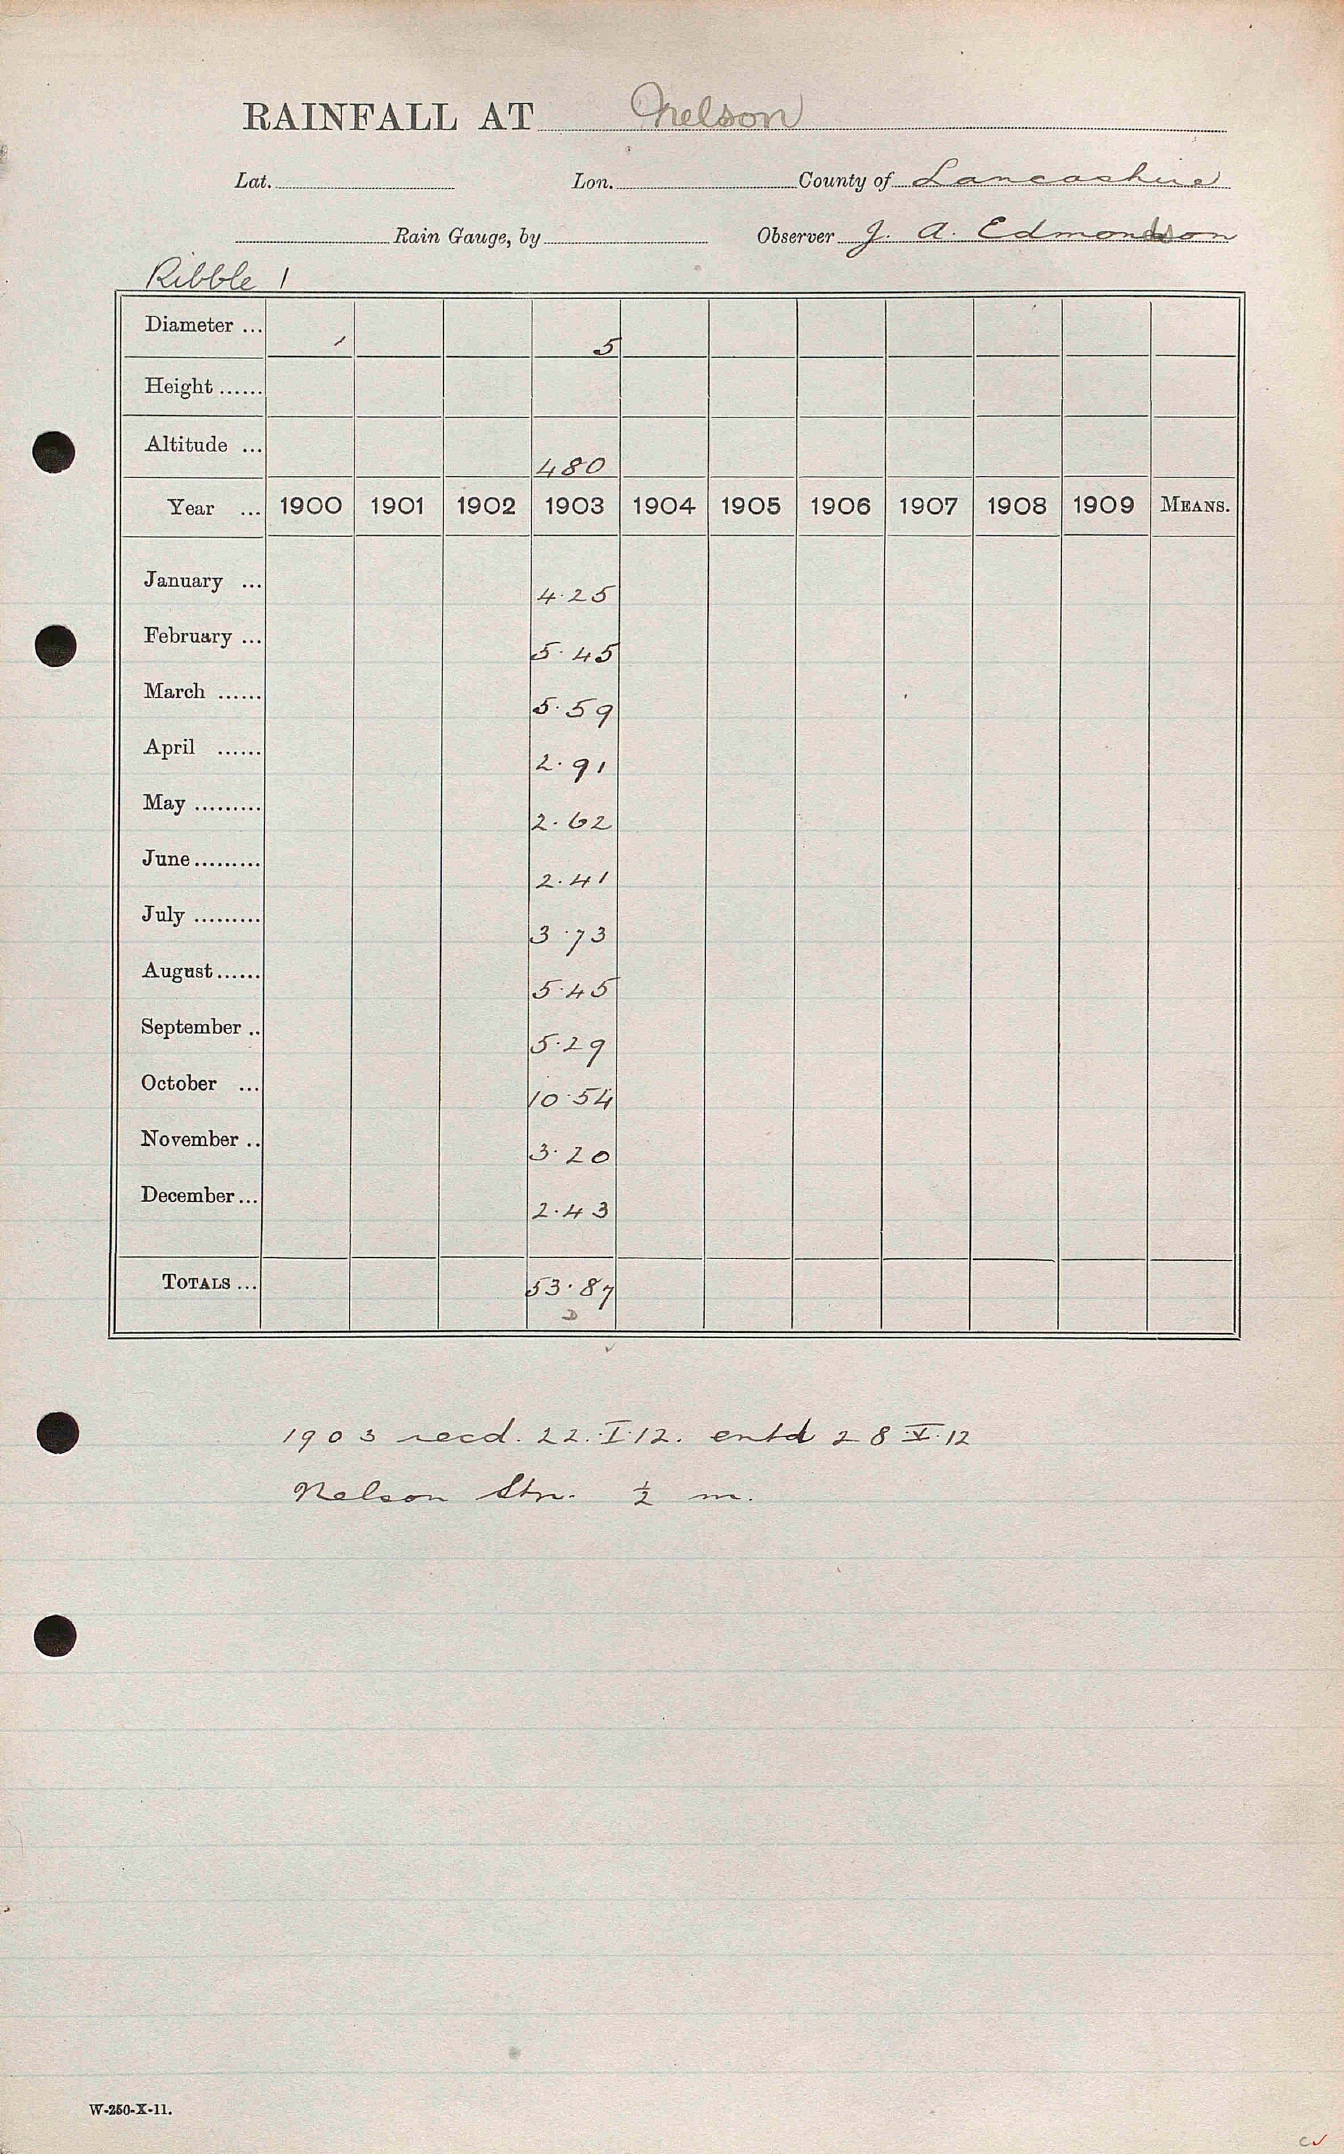 RAINFALL AT Nelson
Lat. Lon. County of Lancashire
Rain Gauge, by Observer J. A. Edmondson
Ribble 1
Diameter ... 5
Height ......
Altitude ... 480
Year ... 1900 1901 1902 1903 1904 1905 1906 1907 1908 1909 MEANS.
January ... 4.25
February ... 5.45
March ...... 5.59
April ...... 2.91
May ......... 2.62
June ......... 2.41
July ......... 3.73
August ...... 5.45
September .. 5.29
October ... 10.54
November .. 3.20
December ... 2.43
TOTALS ... 53.87
D
1903 recd. 22.I.12. entd 28.V.12
Nelson Stn. ½ m.
W-250-X-11.